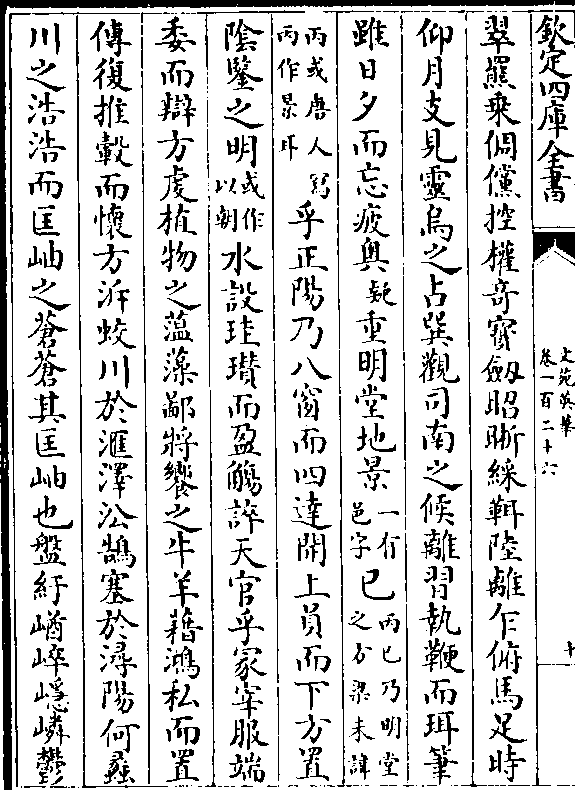 欽定四庫全書
文苑英華
卷一百二十六
十
翠羈乗倜儻控權竒寶劔昭晰綵陸離乍俯馬足時
仰月支見靈烏之占巽觀司南之候離習執鞭而珥筆
雖日夕而忘疲奥疑重明堂地景一有邑字已丙已乃明堂之方梁末諱
丙或唐人冩丙作景耳乎正陽乃八窗而四達開上員而下方置
陰鑒之明或作以朝水設珪瓚而盈觴誶天官乎冡宰服端
委而辯方處植物之薀藻鄙將饗之牛羊藉鴻私而置
傅復推轂而懷方泝蛟川於滙澤㳂鵠塞於潯陽何蠡
川之浩浩而匡岫之蒼蒼其匡岫也盤紆崷崒嶾嶙鬱